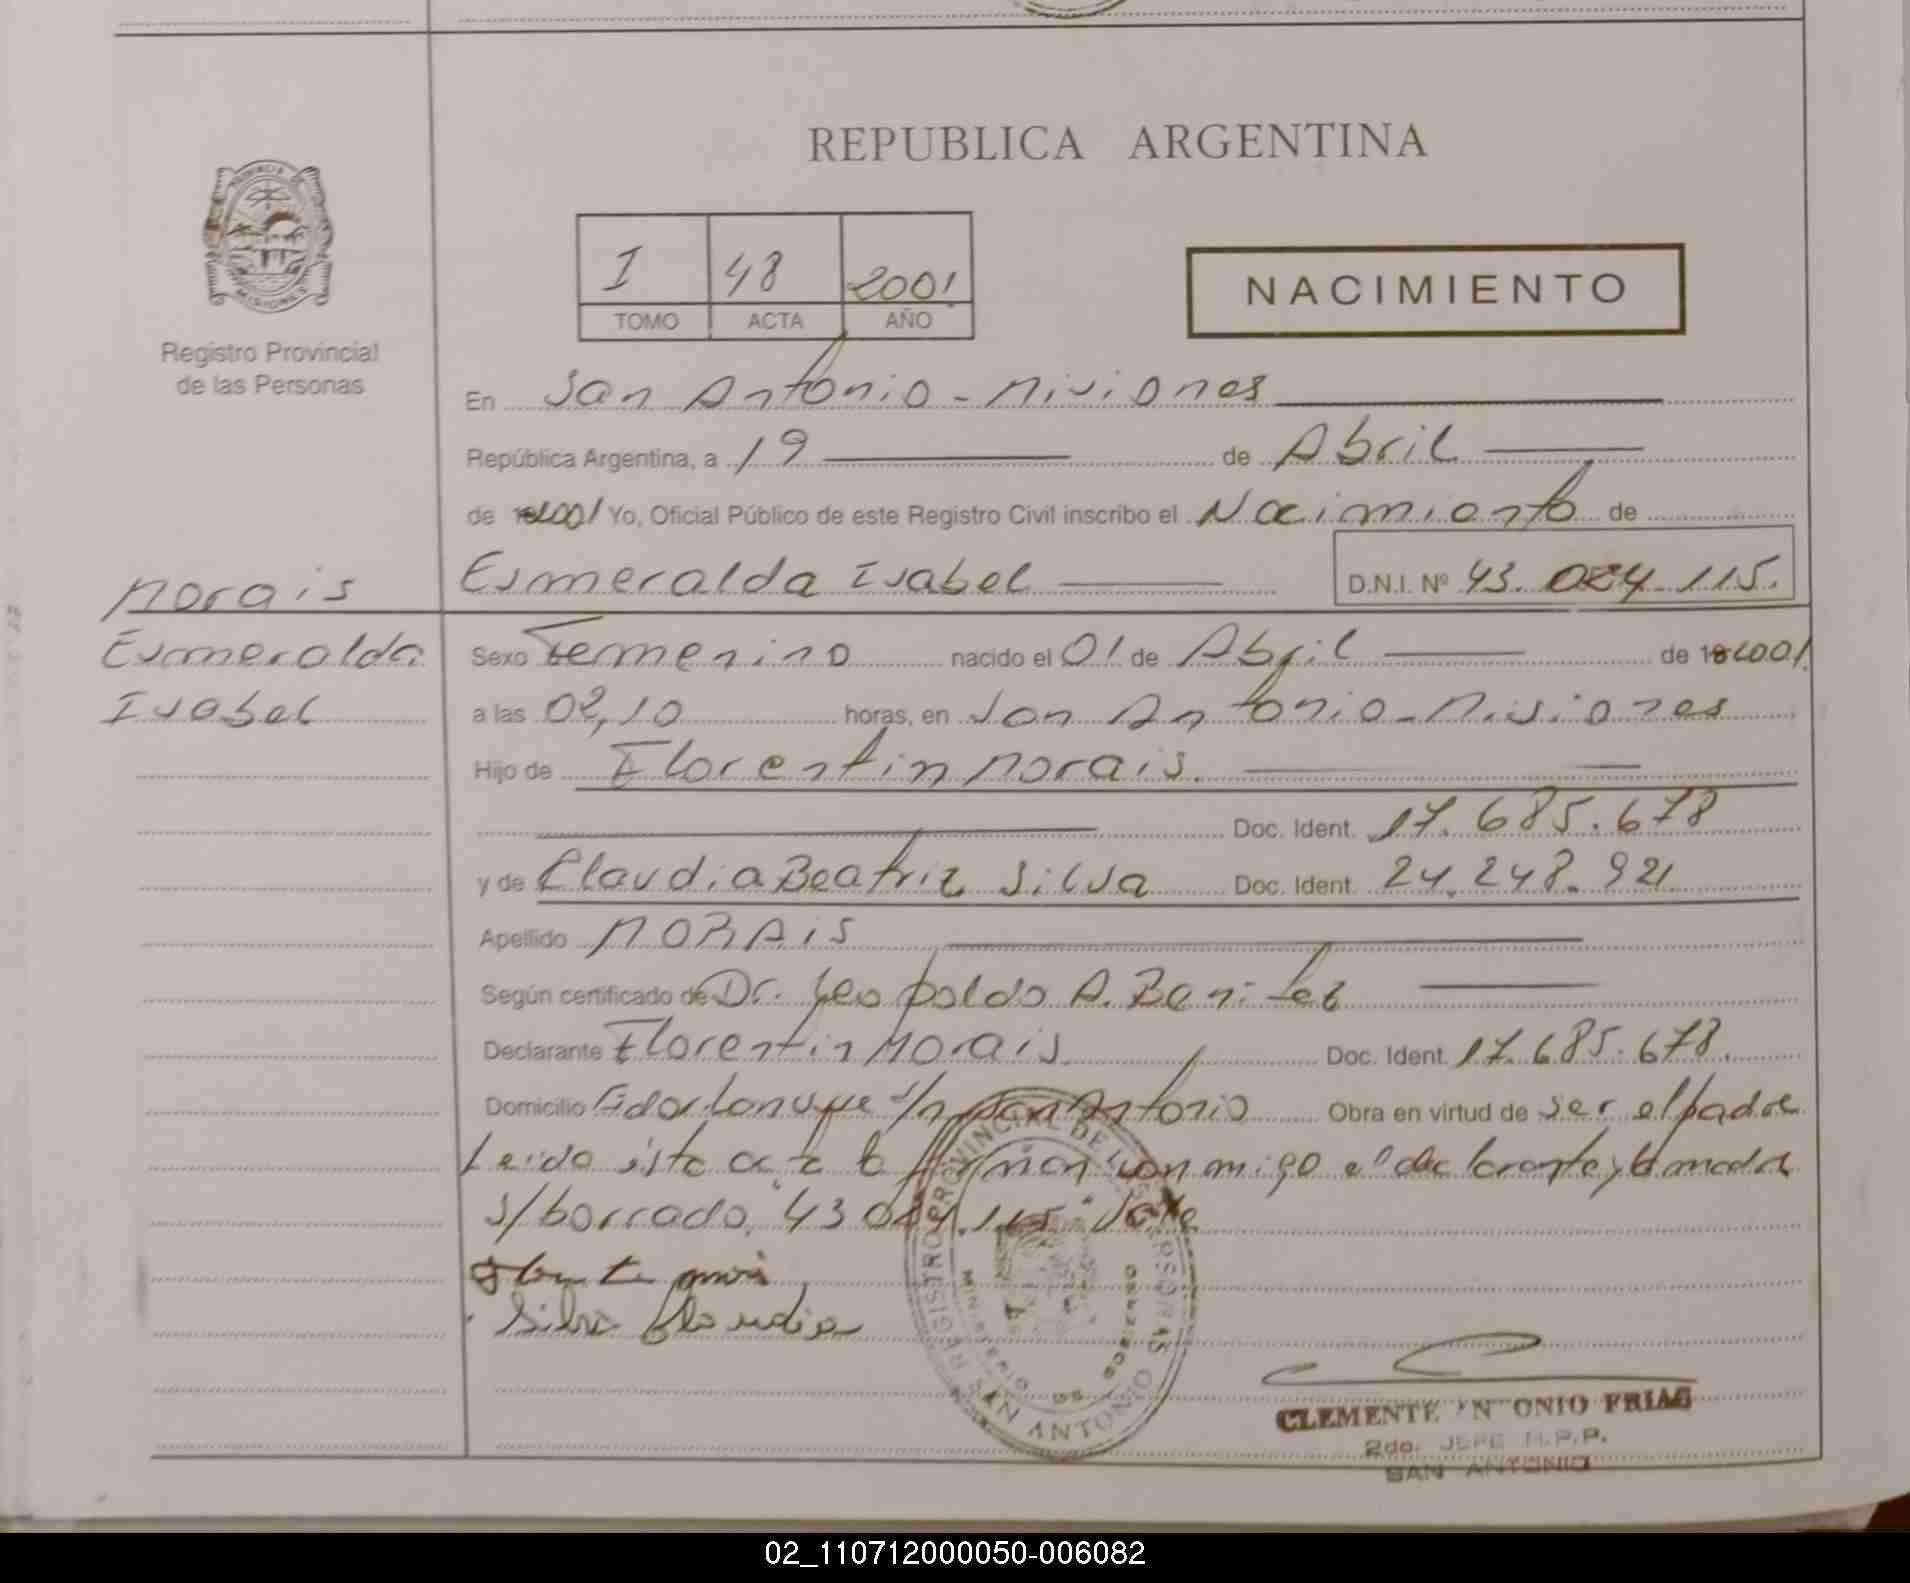 REPUBLICA ARGENTINA
I 48 2001
TOMO ACTA AÑO
NACIMIENTO
Registro Provincial
de las Personas
En San Antonio - Misiones
República Argentina, a 19 de Abril
de 2001 Yo, Oficial Público de este Registro Civil inscribo el Nacimiento de
Esmeralda Isabel D.N.I. Nº 43.084.115.
Morais
Esmeralda
Isabel
Sexo Femenino nacido el 01 de Abril de 2001
a las 02,10 horas, en San Antonio - Misiones
Hijo de Florentin Morais.
Doc. Ident. 17.685.678
y de Claudia Beatriz Silva Doc. Ident. 24.248.921
Apellido MORAiS
Según certificado de Dr. Leopoldo A. Benitez
Declarante Florentin Morais Doc. Ident. 17.685.678.
Domicilio s/n San Antonio Obra en virtud de ser el padre
Leida ésta acta la firman conmigo el declarante y la madre
s/borrado, "43.084.115" Vale
Silva Claudia
REGISTRO PROVINCIAL DE LAS PERSONAS
MINISTERIO DE GOBIERNO
SAN ANTONIO
CLEMENTE ANTONIO FRIAS
2do. JEFE R.P.P.
SAN ANTONIO
02_110712000050-006082